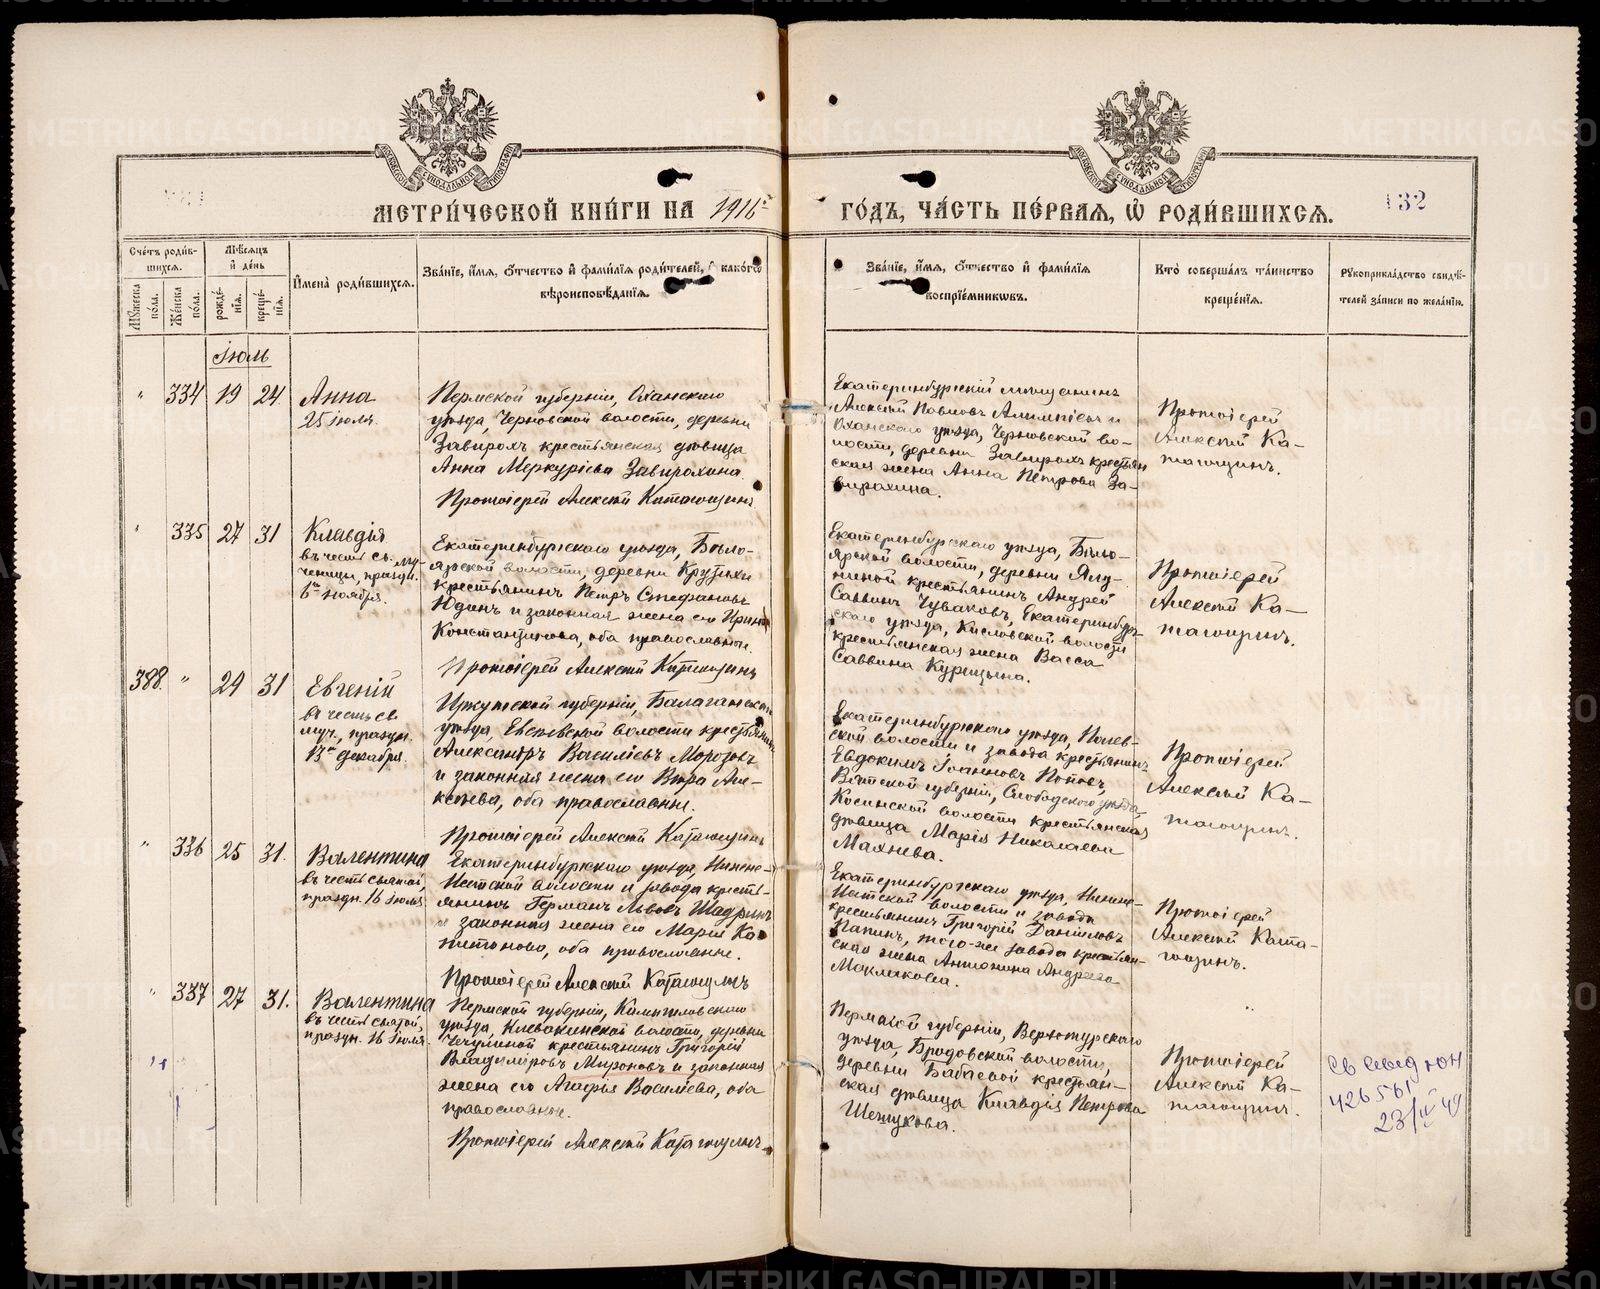 МЕТРИ́ЧЕСКОЙ КНИ́ГИ НА 1916 г
ГО́ДЪ, ЧА́СТЬ ПЕ́РВАЯ, Ѿ РОДИ́ВШИХСѦ.
132
Сче́тъ роди́в-
шихсѧ.
Мѹжеска по́ла.
Же́нска по́ла.
Мѣ́сѧцъ
и҆ де́нь
рожде́-
нїѧ.
креще́-
нїѧ.
И҆мена̀ роди́вшихсѧ.
Зва́нїе, и҆́мѧ, о҆́тчество и҆ фами́лїѧ роди́телей, и҆ како́гѡ
вѣроисповѣ́данїѧ.
Зва́нїе, и҆́мѧ, о҆́тчество и҆ фами́лїѧ
воспрїе́мникѡвъ.
Кто̀ соверша́лъ та́инство
креще́нїѧ.
Рꙋкоприкла́дство свидѣ́-
телей за́писи по жела́нїю.
Іюль
" 334 19 24
Анна
25 іюля.
Пермской губерніи, Оханскаго
уѣзда, Черновской волости, деревни
Завирохъ крестьянская дѣвица
Анна Меркуріева Завирохина.
Протоіерей Алексій Каташцинъ
Екатеринбургскій мѣщанинъ
Алексій Павловъ Алимпіевъ и
Оханскаго уѣзда, Черновской во-
лости, деревни Завирохъ крестьян
ская жена Анна Петрова За-
вирохина.
Протоіерей
Алексій Ка-
" 335 27 31
Клавдія
въ честь св. му-
ченицы, праздн.
6го ноября.
Екатеринбургскаго уѣзда, Бѣло-
ярской волости, деревни Крутихи
крестьянинъ Петръ Стефановъ
Юдинъ и законная жена его Ирина
Константинова, оба православные.
Протоіерей Алексій
Екатеринбургскаго уѣзда, Бѣло-
ярской волости, деревни Ялу-
ниной крестьянинъ Андрей
Саввинъ Чуваковъ, Екатеринбург-
скаго уѣзда, Кисловской волости
крестьянская жена Васса
Саввина Курицына.
Протоіерей
Алексій Ка-
388. " 24 31
Евгеній
въ честь св.
муч., праздн.
13го декабря.
Иркутской губерніи, Балаганскаго
уѣзда, волости крестьянинъ
Александръ Василіевъ Морозовъ
и законная жена его Вѣра Але-
ксѣева, оба православные.
Протоіерей Алексій
Екатеринбургскаго уѣзда, Полев-
ской волости и завода крестьянинъ
Евдокимъ Іоанновъ Поповъ,
Вятской губерніи, Слободского уѣзда,
Косинской волости крестьянская
дѣвица Марія Николаева
Махнева.
Протоіерей
Алексій Ка-
" 336 25 31.
Валентина
въ честь святой,
праздн. 16 іюля
Екатеринбургскаго уѣзда, Нижне-
Исетской волости и завода кресть-
янинъ Германъ Львовъ Шадринъ
и законная жена его Марія Ка-
питонова, оба православные.
Протоіерей Алексій
Екатеринбургскаго уѣзда, Нижне-
Исетской волости и завода
крестьянинъ Григорій Даніиловъ
Папинъ, того-же завода крестьян-
скаго жена Антонина Андреева
Маклакова.
Протоіерей
Алексій Ката-
" 337 27 31.
Валентина
въ честь святой,
праздн. 16 іюля.
Пермской губерніи, Камышловскаго
уѣзда, Клевакинской волости, деревни
Чечулиной крестьянинъ Григорій
Владиміровъ Мироновъ и законная
жена его Агафья Василіева, оба
православные.
Протоіерей Алексій
Пермской губерніи, Верхотурскаго
уѣзда, Бродовской волости,
деревни Бабиевой крестьян-
ская дѣвица Клавдія Петрова
Шешукова.
Протоіерей
Алексій Ка-
426561
23/IV 49
METRIKI.GASO-URAL.RU